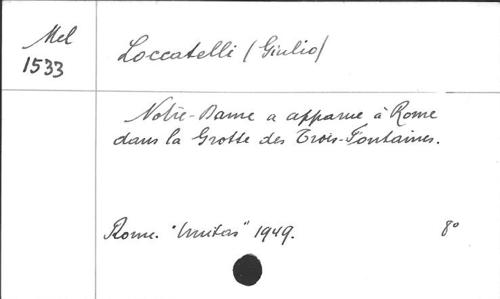 Mel
1533
Loccatelli (Giulio)
Notre-Dame a apparue à Rome
dans la Grotte des Trois-Fontaines.
Rome. "Unitas" 1949. 8°